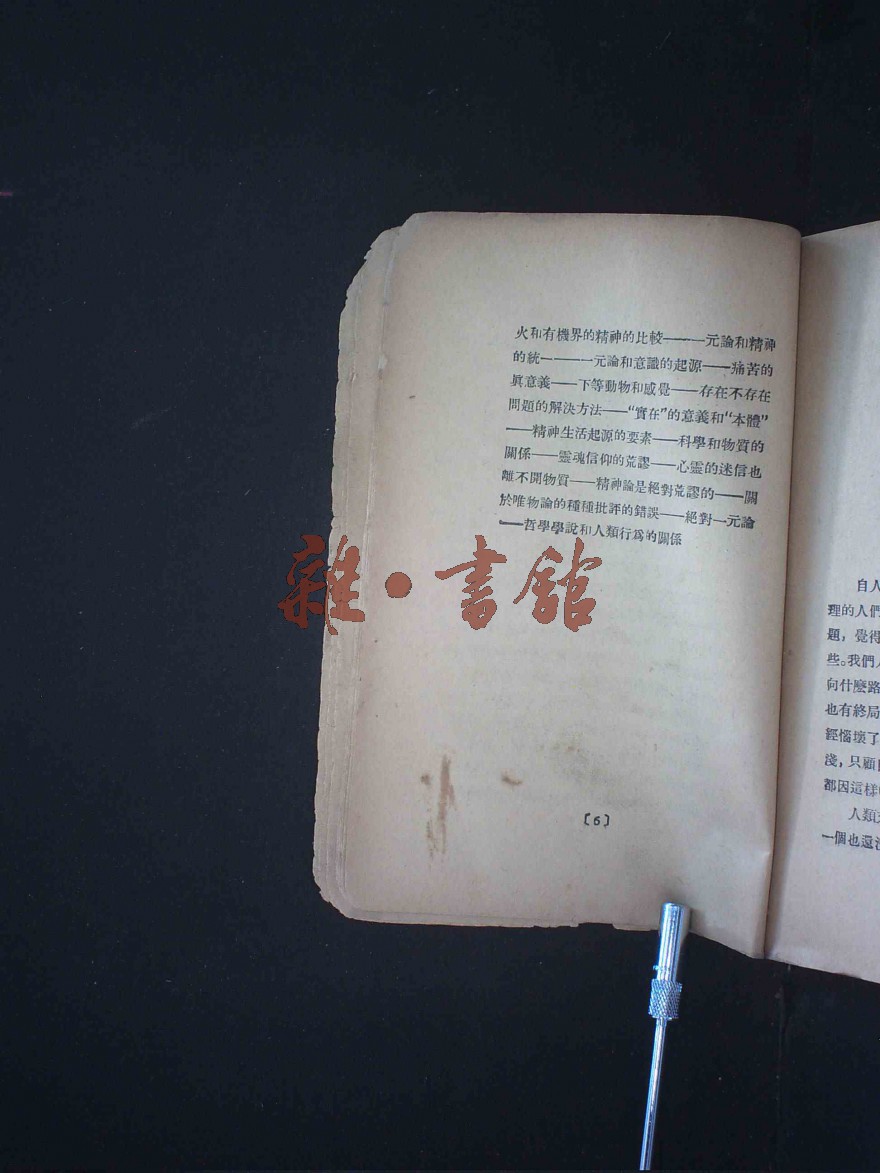 火和有機界的精神的比較——一元論和精神
的統一——一元論和意識的起源——痛苦的
眞意義——下等動物和感覺——存在不存在
問題的解決方法——“實在”的意義和“本體”
——精神生活起源的要素——科學和物質的
關係——靈魂信仰的荒謬——心靈的迷信也
離不開物質——精神論是絕對荒謬的——關
於唯物論的種種批評的錯誤——絕對一元論
——哲學學說和人類行爲的關係
雜·書館
〔6〕
自人
理的人們
題，覺得
些。我們人
向什麼路
也有終局
經惱壞了
淺，只顧自
都因這樣
人類
一個也還沒